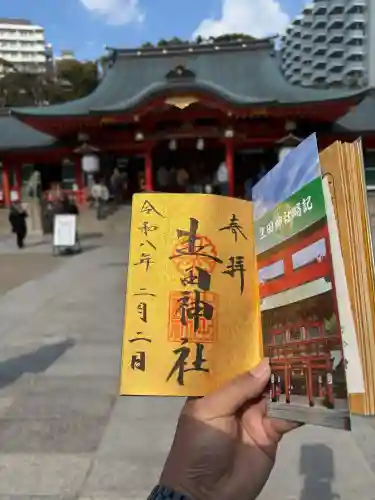 奉拝
生田神社
令和八年二月二日
生田神社略記